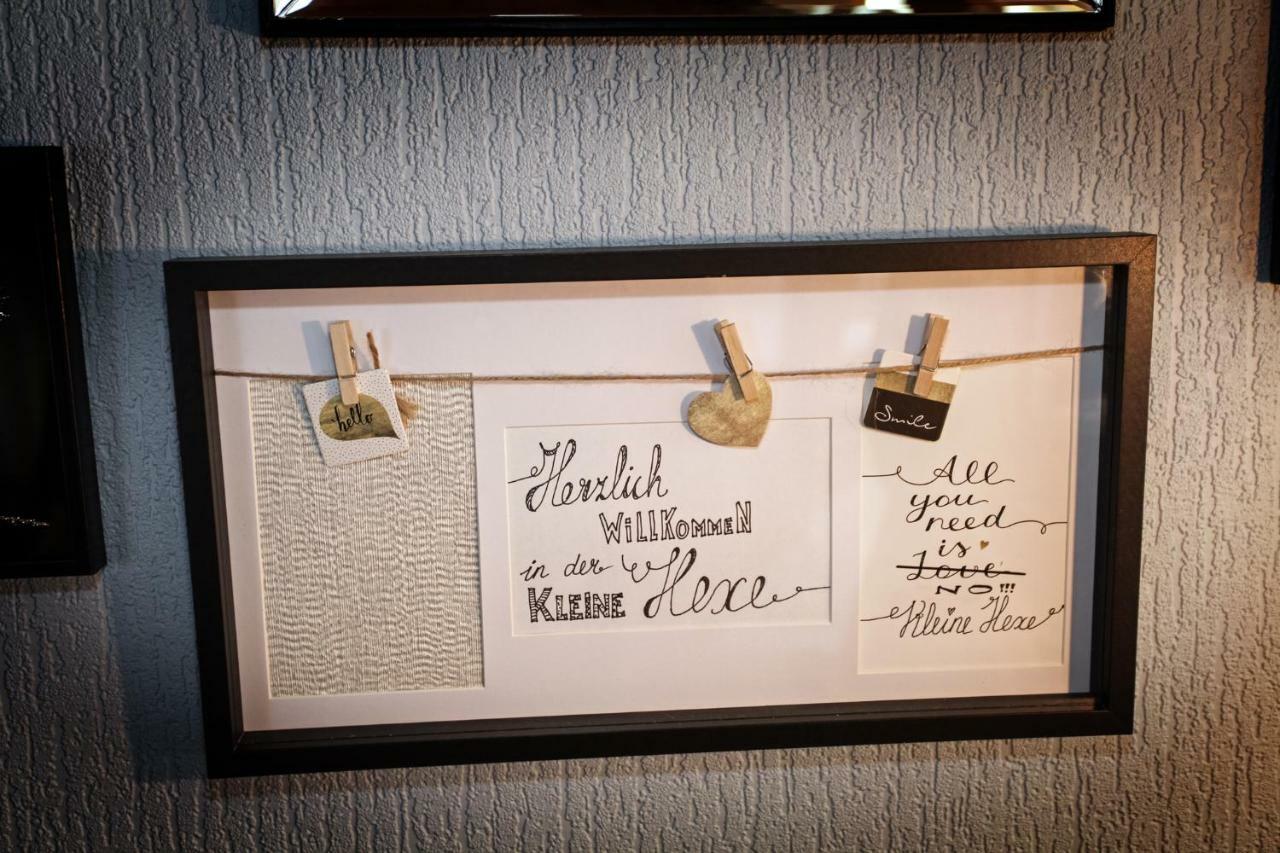 hello
Smile
Herzlich
WiLLKOMMEN
in der
KLEINE Hexe
All
you
need
is
Love
NO!!!
Kleine Hexe